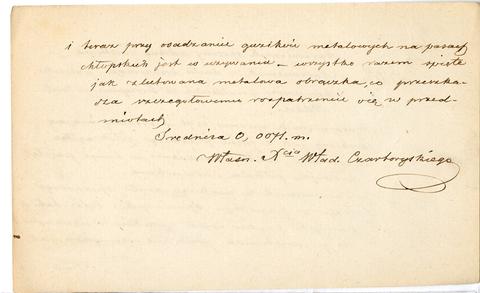 i teraz przy osadzaniu guzików metalowych na pasach
chłopskich jest w używaniu – wszystko razem spięte
jak zlutowana metalowa obrączka, co przeszka-
dza szczegółowemu rozpatrzeniu się w przed-
miotach
Średnica 0,0071. m.
Własn. Xcia Wład. Czartoryskiego